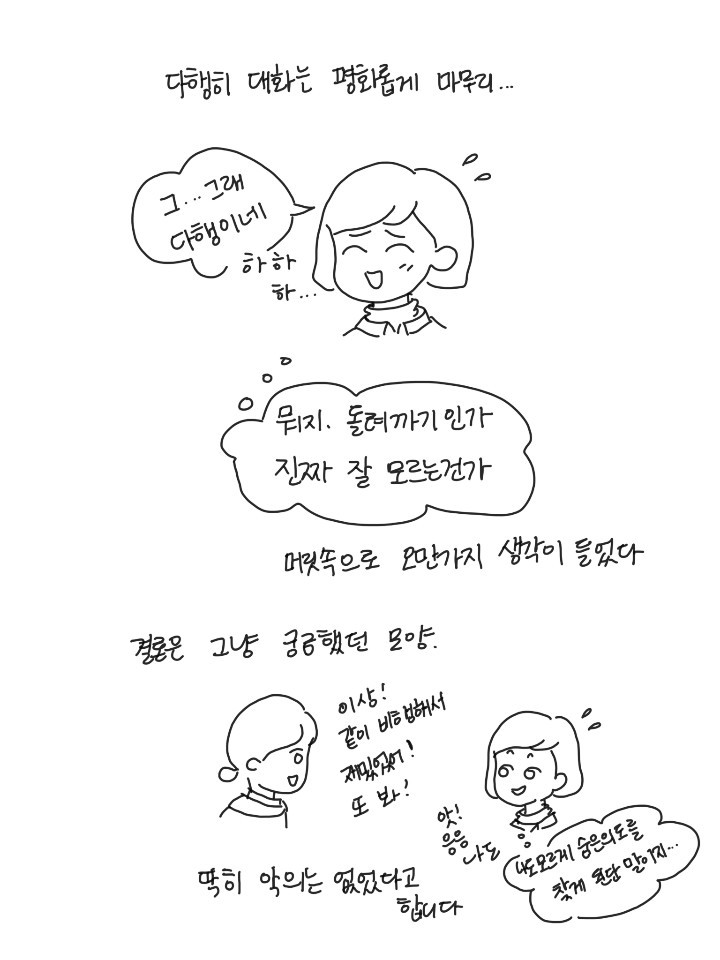 다행히 대화는 평화롭게 마무리...
그...그래
다행이네
하하
하...
뭐지. 돌려까기인가
진짜 잘 모르는건가
머릿속으로 오만가지 생각이 들었다
결론은 그냥 궁금했던 모양.
이상!
같이 비행해서
재밌었어!
또 봐!
앗!
응응
나도
나도모르게 숨은의도를
찾게 된단 말이지...
딱히 악의는 없었다고
합니다